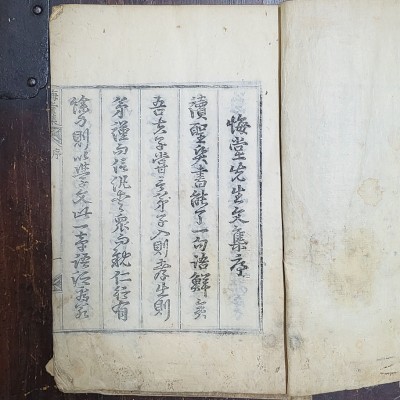 悔堂先生文集序
讀聖賢書能了一句語鮮矣
吾夫子嘗言弟子入則孝出則
弟謹而信汎愛衆而親仁行有
餘力則以學文此一章語
序